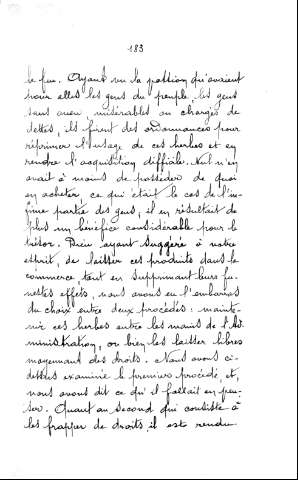 183
le feu. Ayant vu la passion qu'avaient
pour elles les gens du peuple, les gens
sans aveu, misérables ou chargés de
dettes, ils firent des ordonnances pour
réprimer l'usage de ces herbes et en
rendre l'acquisition difficile. Nul n'en
avait à moins de posséder de quoi
en acheter ce qui était le cas de l'in-
fime partie des gens, il en résultait de
plus un bénéfice considérable pour le
trésor. Dieu ayant suggéré à notre
esprit, de laisser ces produits dans le
commerce tout en supprimant leurs fu-
nestes effets, nous avons eu l'embarras
du choix entre deux procédés : mainte-
nir ces herbes entre les mains de l'Ad
ministration, ou bien les laisser libres
moyennant des droits. Nous avons ci-
dessus examiné le premier procédé, et,
nous avons dit ce qu'il fallait en pen-
ser. Quant au second qui consiste à
les frapper de droits, il est rendu